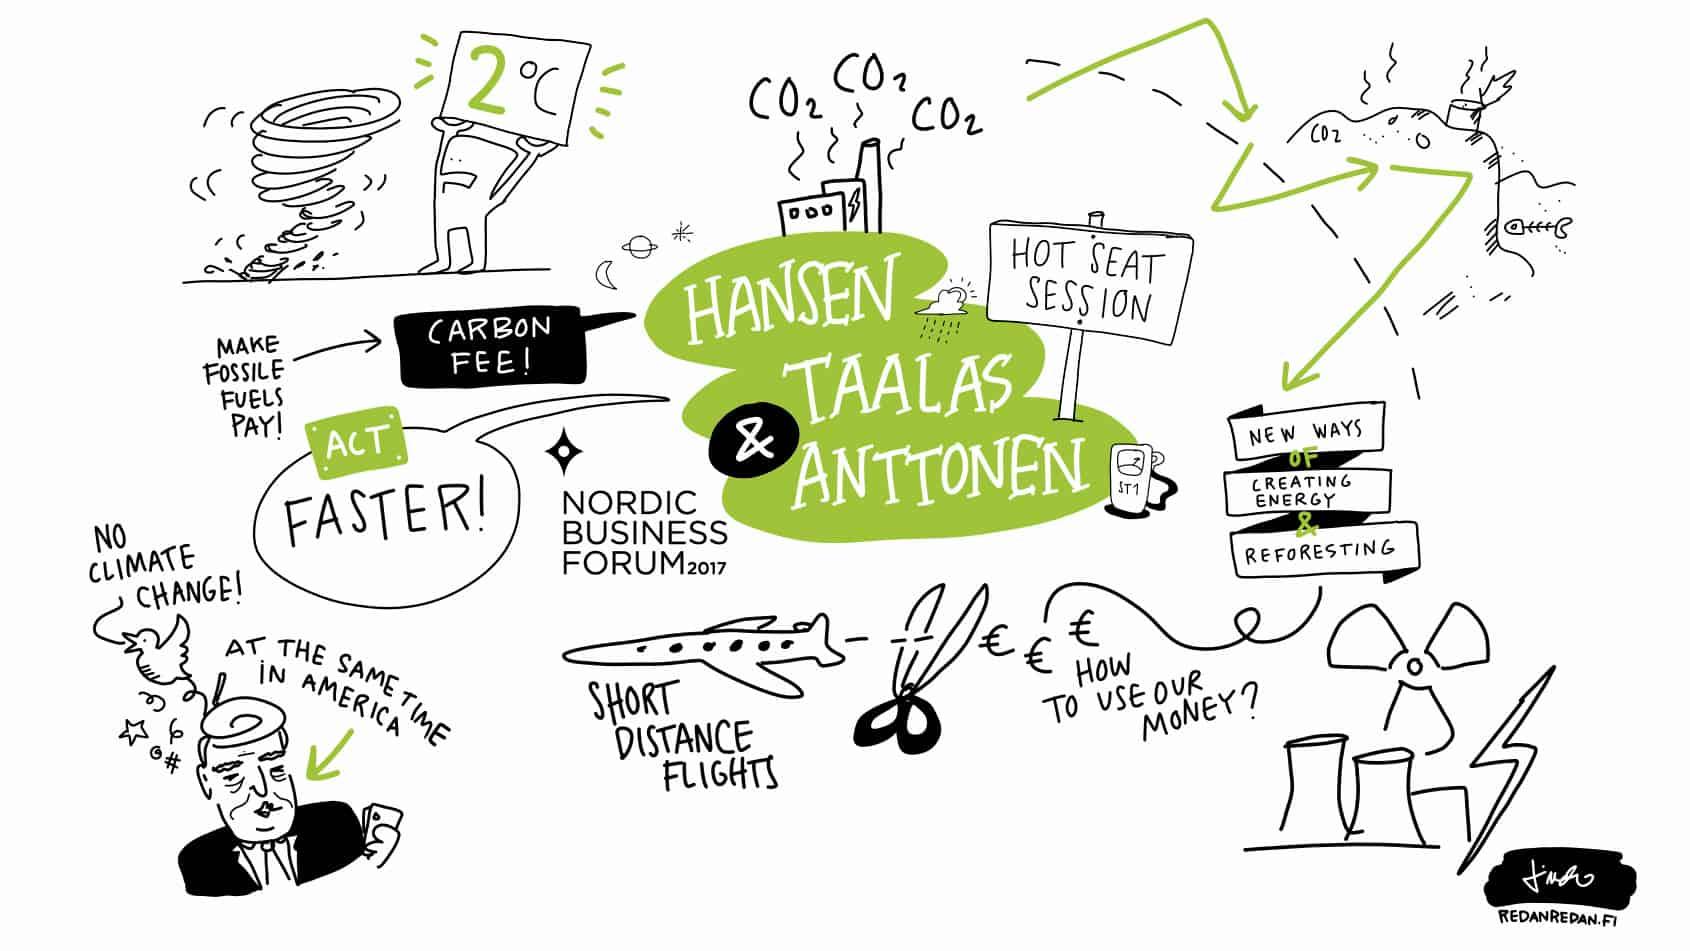 2 °C
CO2
CO2
CO2
CO2
HANSEN
TAALAS
& ANTTONEN
HOT SEAT
SESSION
CARBON
FEE!
MAKE
FOSSILE
FUELS
PAY!
ACT
FASTER!
NORDIC
BUSINESS
FORUM2017
ST1
NEW WAYS
OF
CREATING
ENERGY
&
REFORESTING
NO
CLIMATE
CHANGE!
AT THE SAME TIME
IN AMERICA
@#
SHORT
DISTANCE
FLIGHTS
€ € €
HOW
TO USE OUR
MONEY?
REDANREDAN.FI